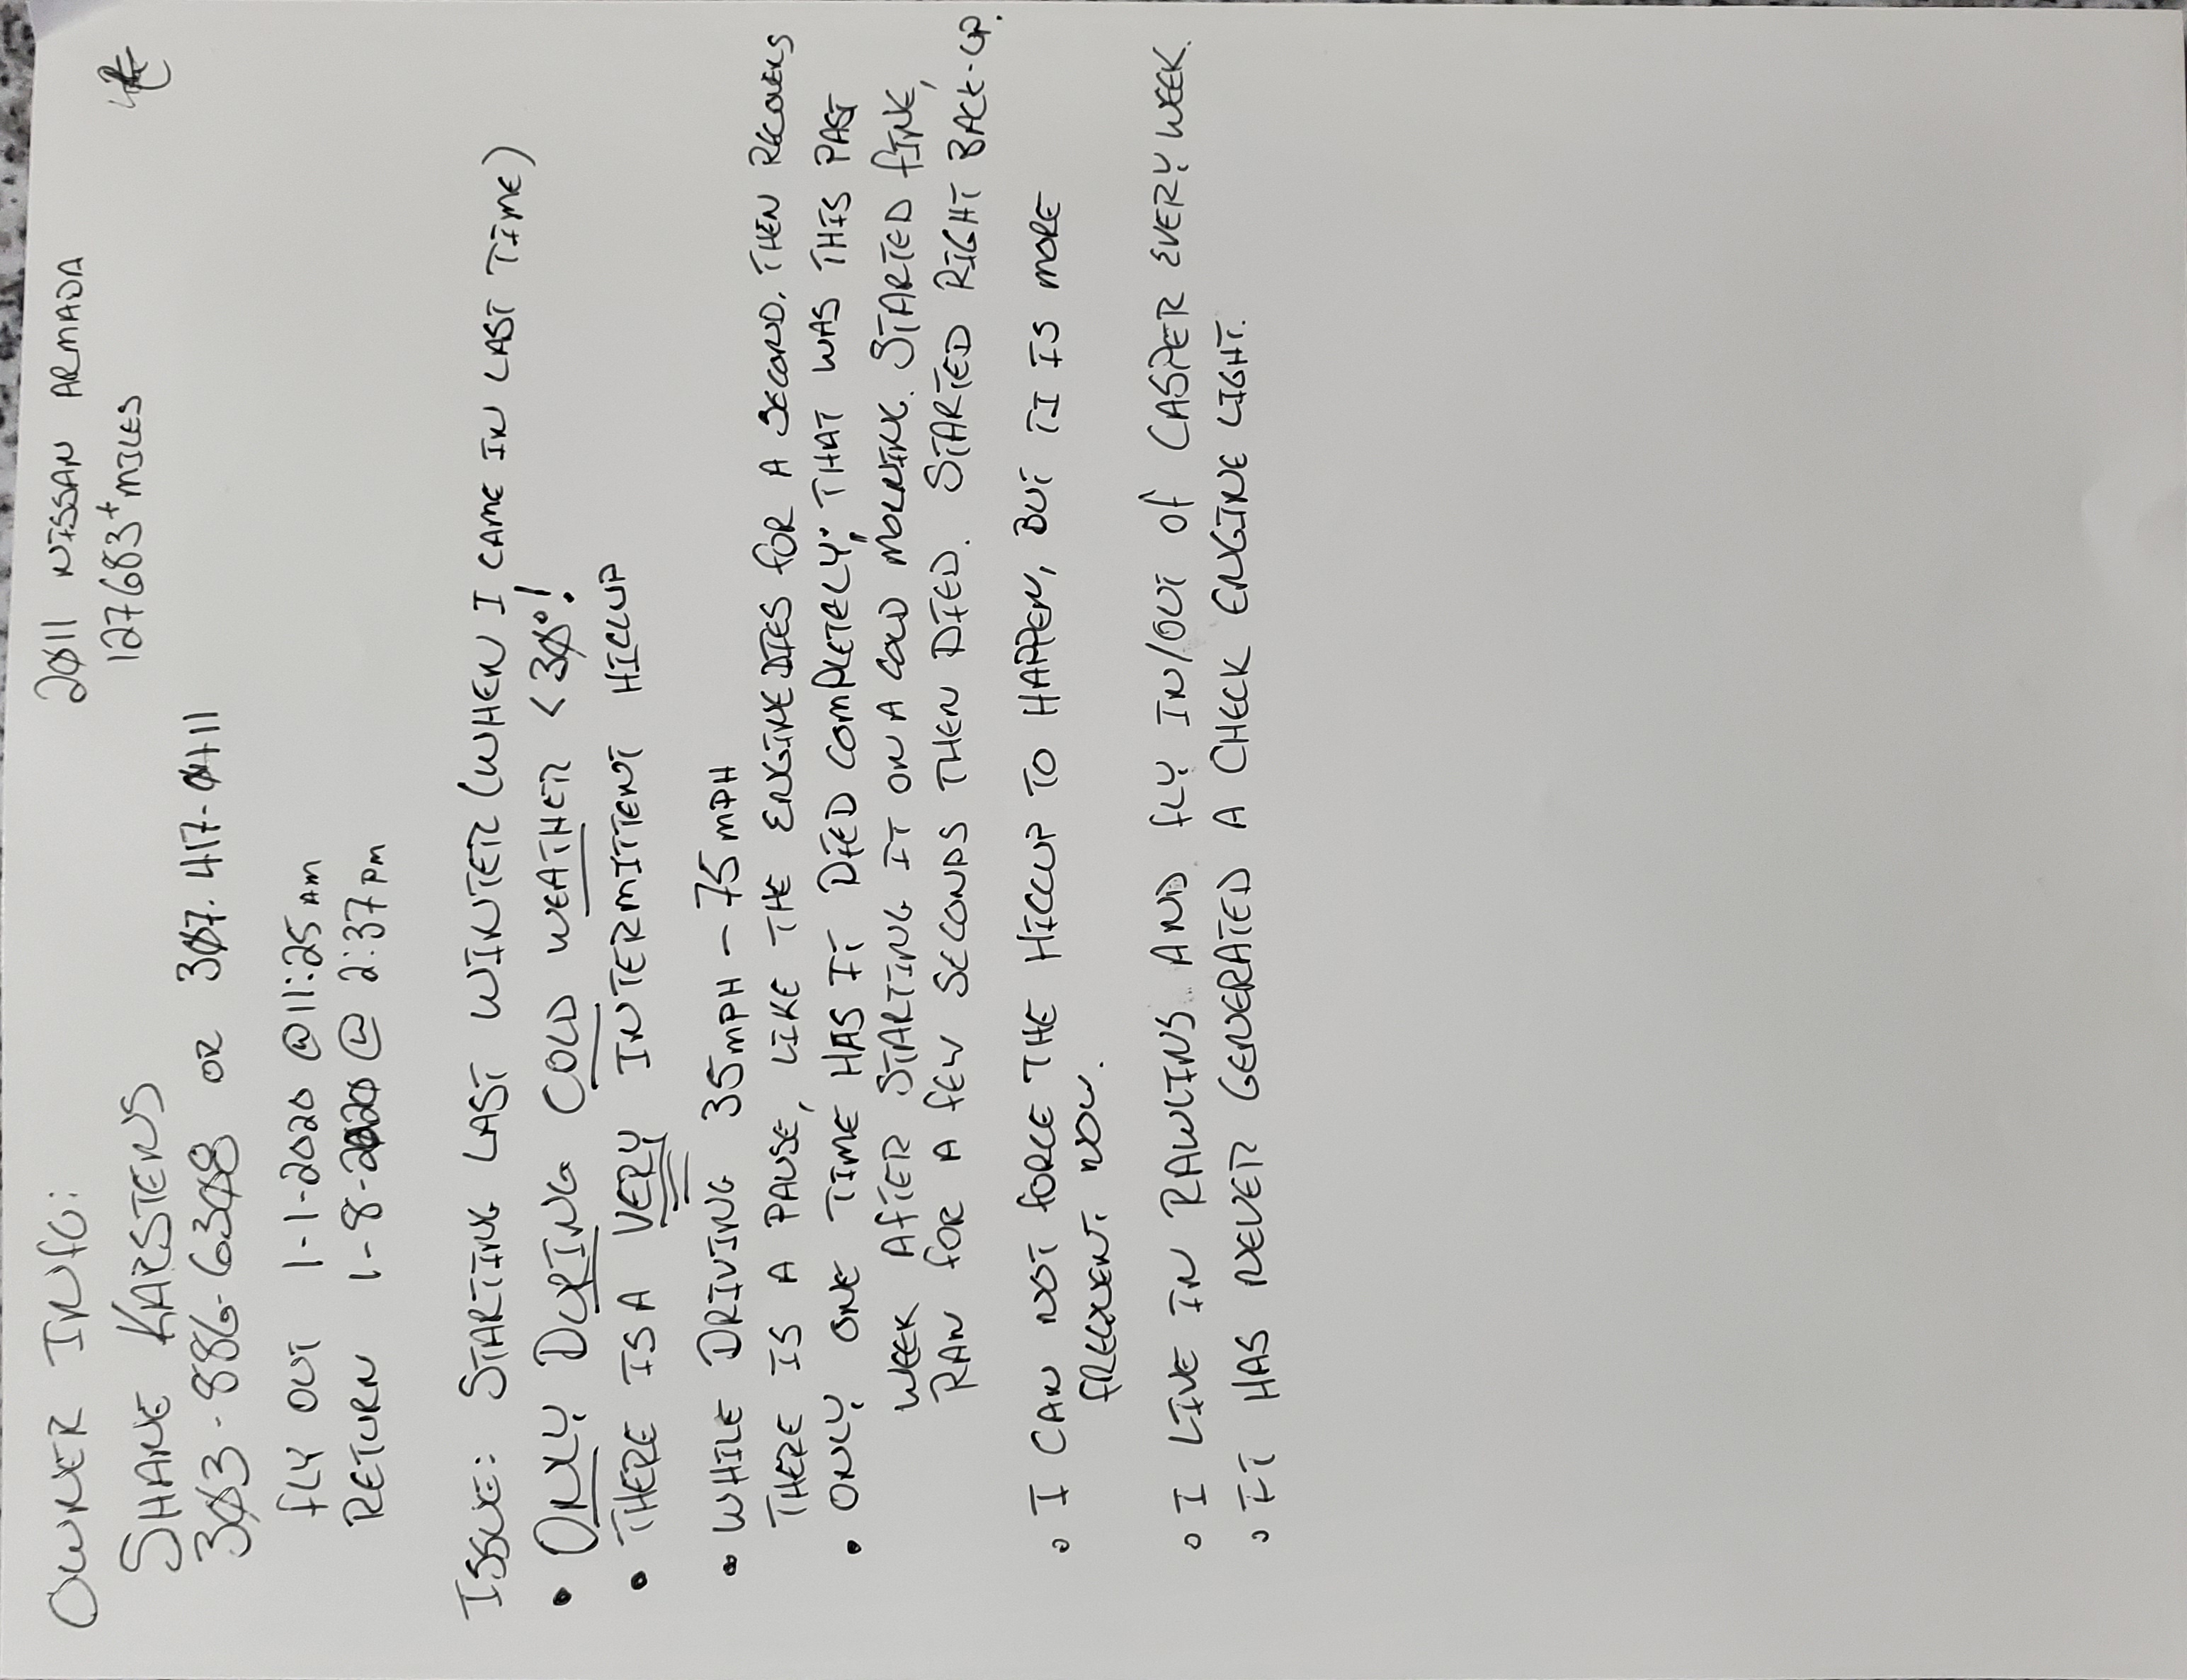 OWNER INFO:
2011 NISSAN ARMADA
SHANE KARSTENS
127683+ MILES
303-886-6308 OR 307.417-0411
FLY OUT 1-1-2020 @ 11:25 AM
RETURN 1-8-2020 @ 2:37 PM
ISSUE: STARTING LAST WINTER (WHEN I CAME IN LAST TIME)
• ONLY DURING COLD WEATHER <30°!
• THERE IS A VERY INTERMITTENT HICCUP
• WHILE DRIVING 35MPH - 75MPH
THERE IS A PAUSE, LIKE THE ENGINE DIES FOR A SECOND, THEN RECOVERS
• ONLY ONE TIME HAS IT DIED COMPLETELY; THAT WAS THIS PAST
WEEK AFTER STARTING IT ON A COLD MORNING. STARTED FINE,
RAN FOR A FEW SECONDS THEN DIED. STARTED RIGHT BACK-UP.
• I CAN NOT FORCE THE HICCUP TO HAPPEN, BUT IT IS MORE
FREQUENT NOW.
• I LIVE IN RAWLINS AND FLY IN/OUT OF CASPER EVERY WEEK.
• IT HAS NEVER GENERATED A CHECK ENGINE LIGHT.